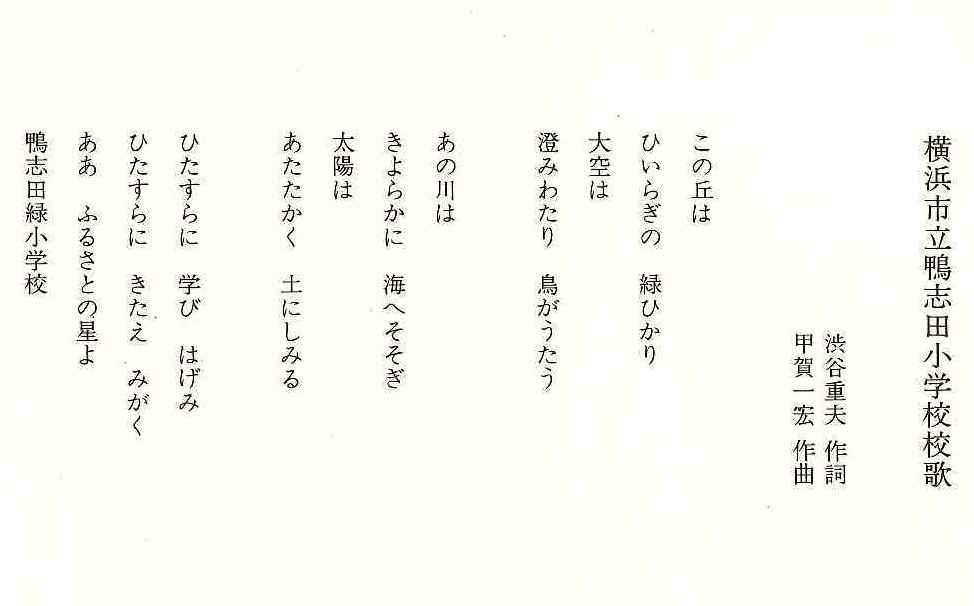 横浜市立鴨志田小学校校歌
渋谷重夫 作詞
甲賀一宏 作曲
この丘は
ひいらぎの　緑ひかり
大空は
澄みわたり　鳥がうたう
あの川は
きよらかに　海へそそぎ
太陽は
あたたかく　土にしみる
ひたすらに　学び　はげみ
ひたすらに　きたえ　みがく
ああ　ふるさとの星よ
鴨志田緑小学校